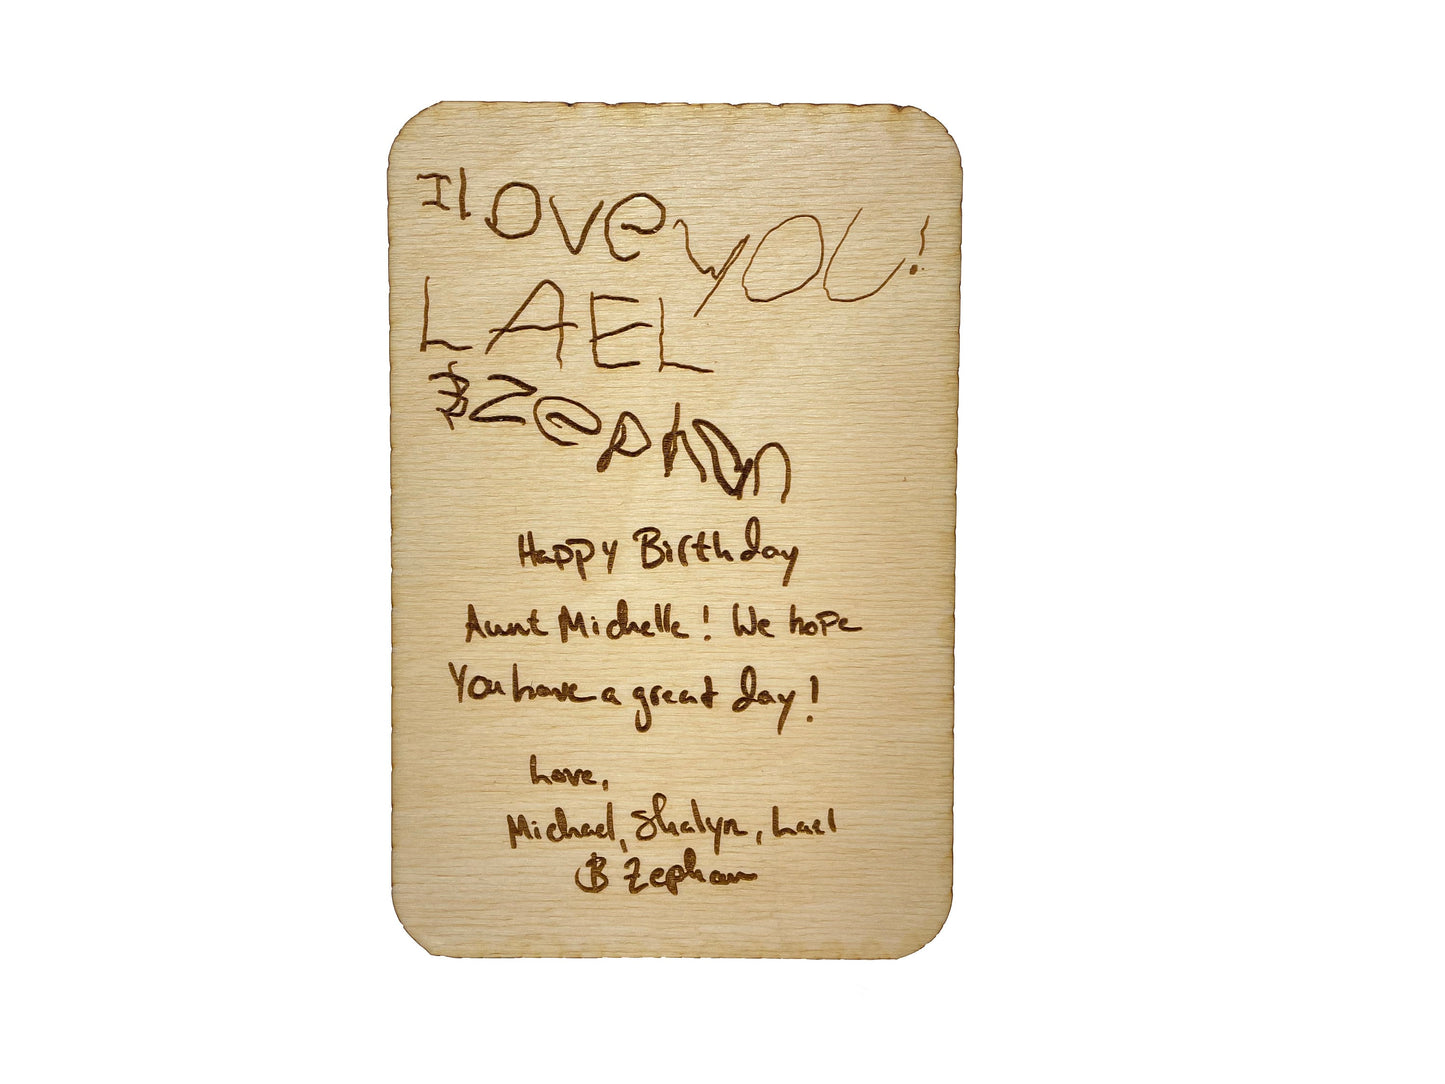 I love you!
LAEL
& Zephan
Happy Birthday
Aunt Michelle! We hope
You have a great day!
Love,
Michael, Shalyn, Lael
& Zephan